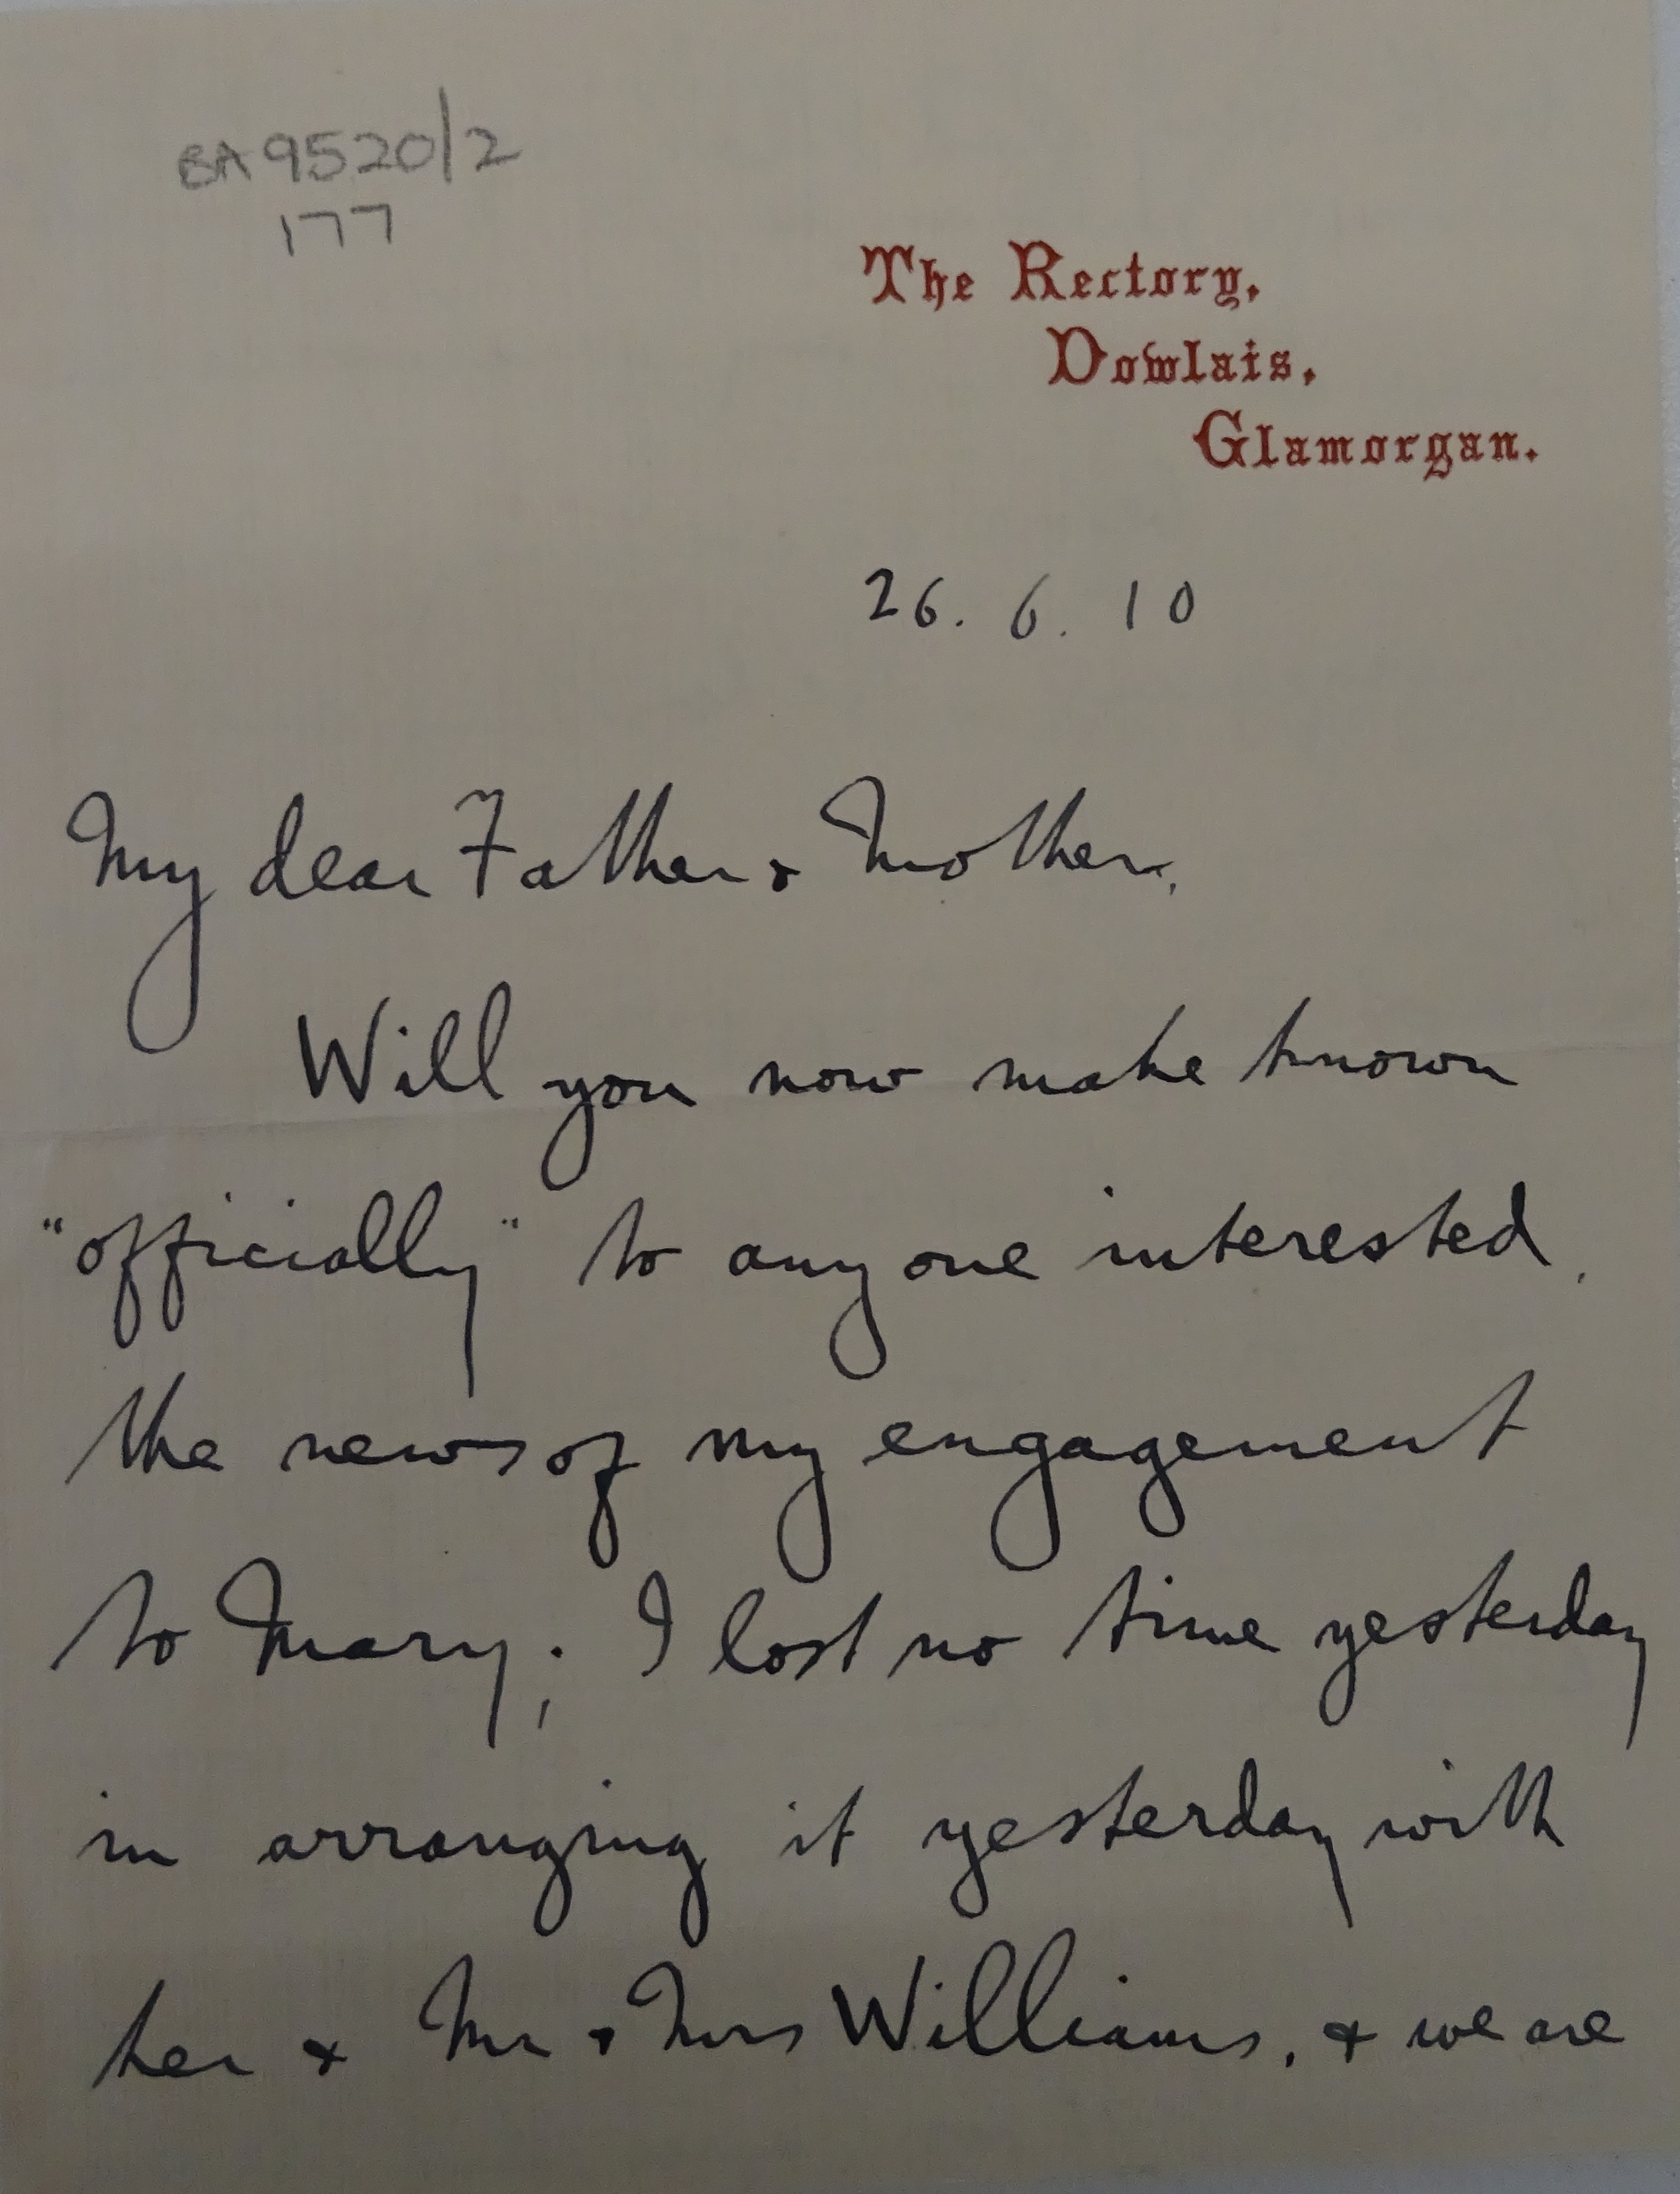 BA 9520/2
177
The Rectory,
Dowlais,
Glamorgan.
26. 6. 10
My dear Father & Mother,
Will you now make known
"officially" to anyone interested,
the news of my engagement
to Mary; I lost no time yesterday
in arranging it yesterday with
her & Mr & Mrs Williams, & we are